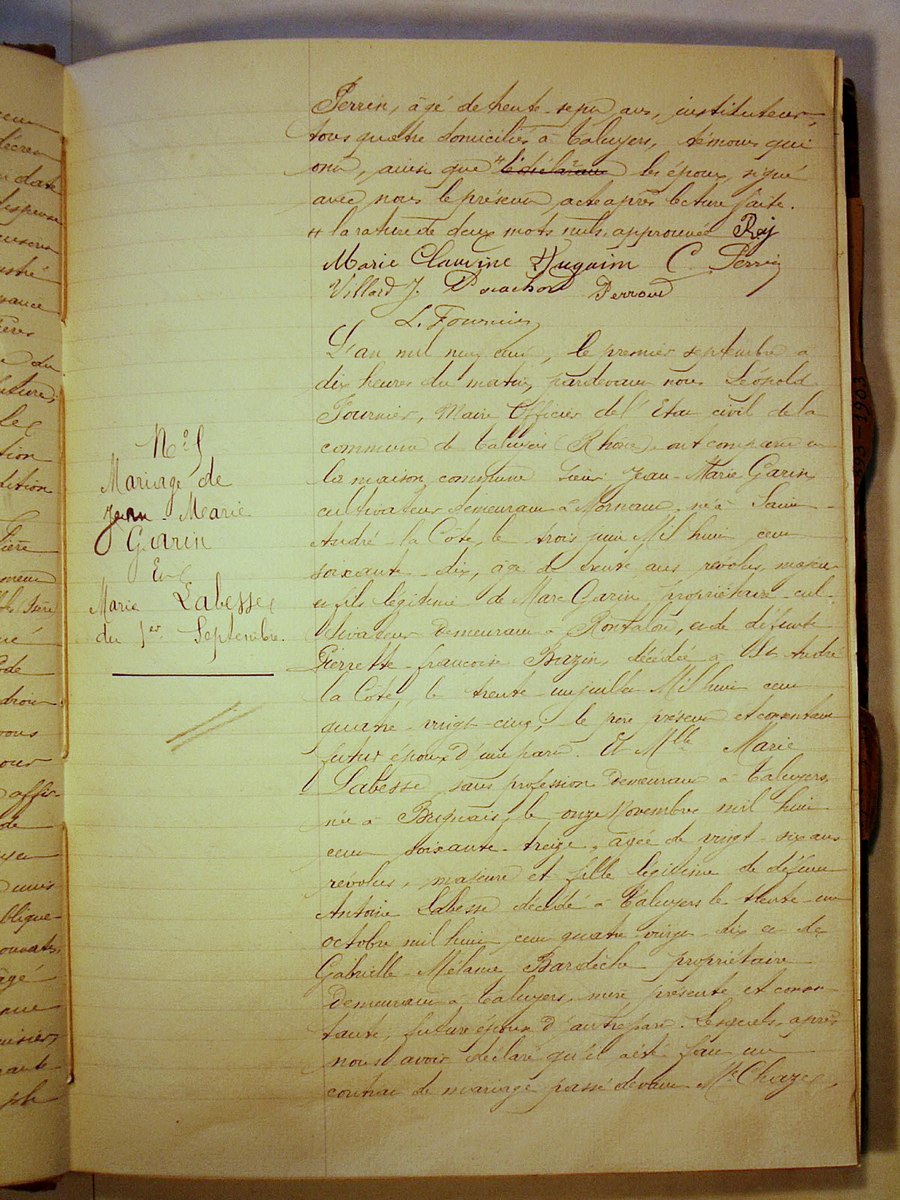 Perrin, âgé de trente-sept ans, instituteur,
tous quatre domiciliés à Taluyers, témoins qui
ont, ainsi que les époux, signé
avec nous le présent acte après lecture faite.
la rature de deux mots nuls, approuvée Rey
Marie Claudine Huguim C. Perrin
Villard J. Perroud
L. Fournier
L'an mil neuf cent, le premier septembre à
dix heures du matin, pardevant nous Léopold
Fournier, Maire Officier de l'Etat civil de la
commune de Taluyers (Rhône), ont comparu en
la maison commune Sieur Jean-Marie Garin
cultivateur demeurant à Mornant, né à Saint-
André-la-Côte, le trois juin Mil huit cent
soixante-dix, âgé de trente ans révolus, majeur
et fils légitime de Marc Garin propriétaire-cul-
tivateur demeurant à Rontalon, et de défunte
Pierrette-françoise Bazin, décédée à St André
la Côte, le trente un juillet Mil huit cent
quatre-vingt-cinq, le père présent et consentant
futur époux d'une part. Et Mlle Marie
Labesse sans profession demeurant à Taluyers
née à Brignais, le onze Novembre mil huit
cent soixante-treize, âgée de vingt-six ans
révolus, majeure et fille légitime de défunt
Antoine Labesse décédé à Taluyers le trente-un
octobre mil huit cent quatre vingt-dix et de
Gabrielle-Mélanie Bardèche propriétaire
demeurant à Taluyers, mère présente et consen-
tante, future épouse d'autre part. Lesquels, après
nous avoir déclaré qu'il a été fait un
contrat de mariage passé devant Me Chaze,
Mariage de
Jean-Marie
Garin
Et
Marie Labesse
du 1er Septembre.
1893-1903